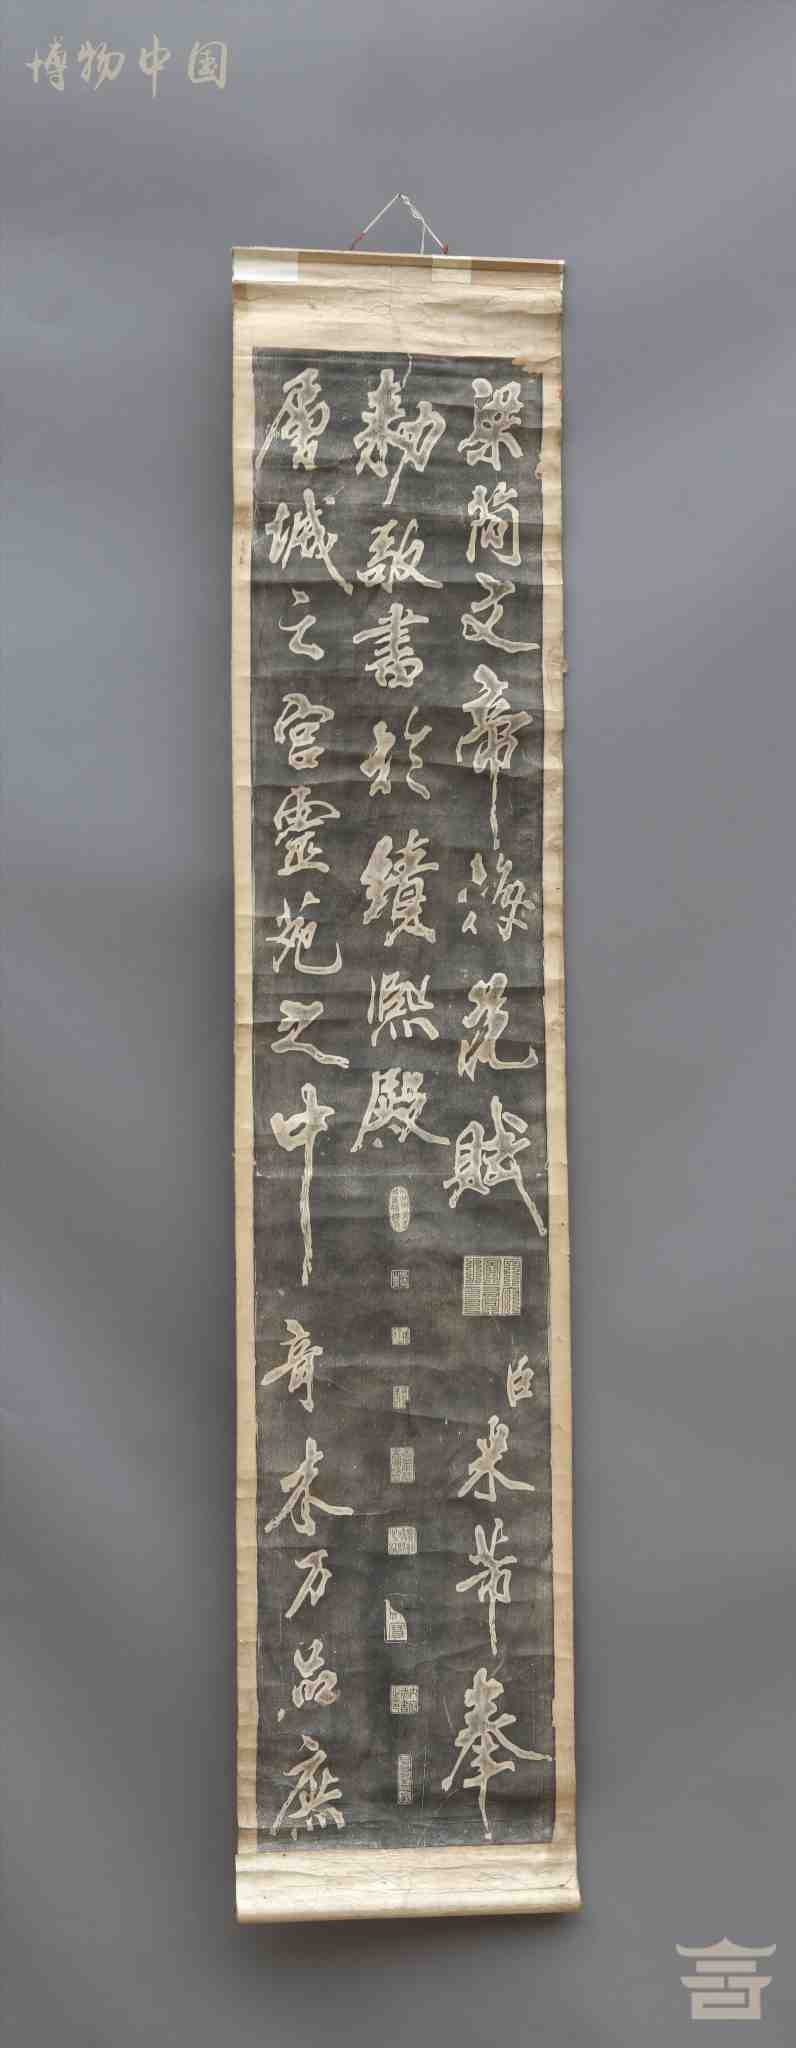 博物中国
梁简文帝梅花赋
臣米芾奉
敕敬書於緝熙殿
層城之宮靈苑之中
奇木万品庶